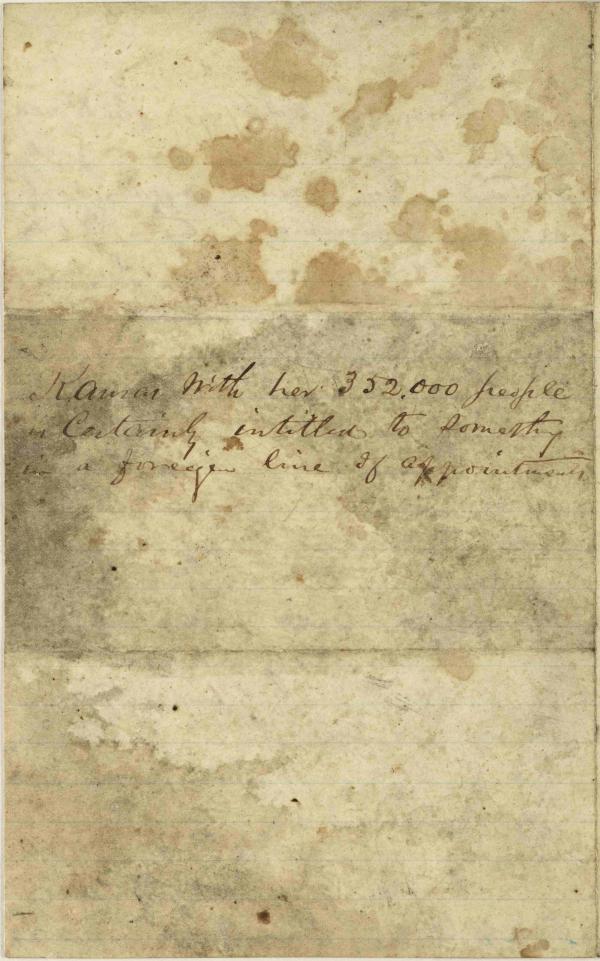 Kansas With her 352.000 people
is Certainly intitled to Something
in a foreign line of appointments